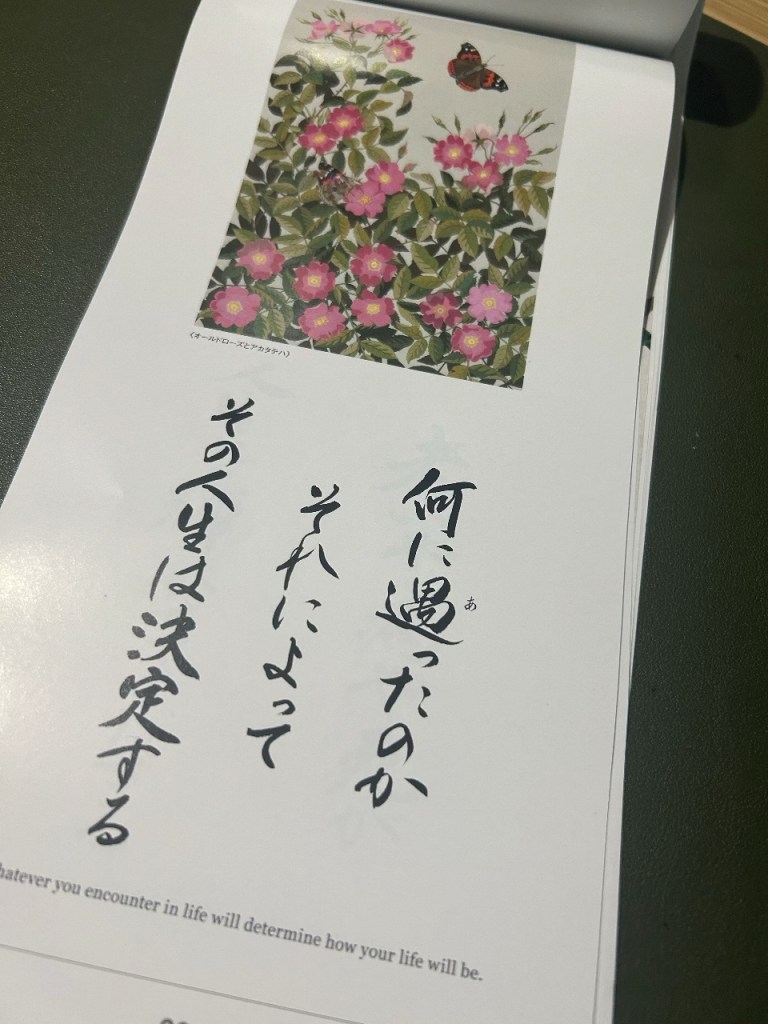 《オールドローズとアカタテハ》
何に遇ったのか
あ
それによって
その人生は決定する
hatever you encounter in life will determine how your life will be.